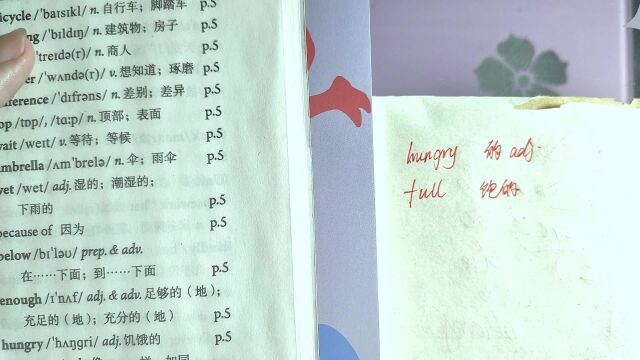 icycle /ˈbaɪsɪkl/ n. 自行车；脚踏车 p.5
ng /ˈbɪldɪŋ/ n. 建筑物；房子 p.5
/ˈtreɪdə(r)/ n. 商人 p.5
er /ˈwʌndə(r)/ v. 想知道；琢磨 p.5
ference /ˈdɪfrəns/ n. 差别；差异 p.5
op /tɒp/, /tɑːp/ n. 顶部；表面 p.5
wait /weɪt/ v. 等待；等候 p.5
umbrella /ʌmˈbrelə/ n. 伞；雨伞 p.5
wet /wet/ adj. 湿的；潮湿的；
下雨的 p.5
because of 因为 p.5
below /bɪˈləʊ/ prep. & adv.
在……下面；到……下面 p.5
enough /ɪˈnʌf/ adj. & adv. 足够的（地）；
充足的（地）；充分的（地） p.5
hungry /ˈhʌŋɡri/ 饥饿的 p.5
hungry 的 adj.
full 饱的